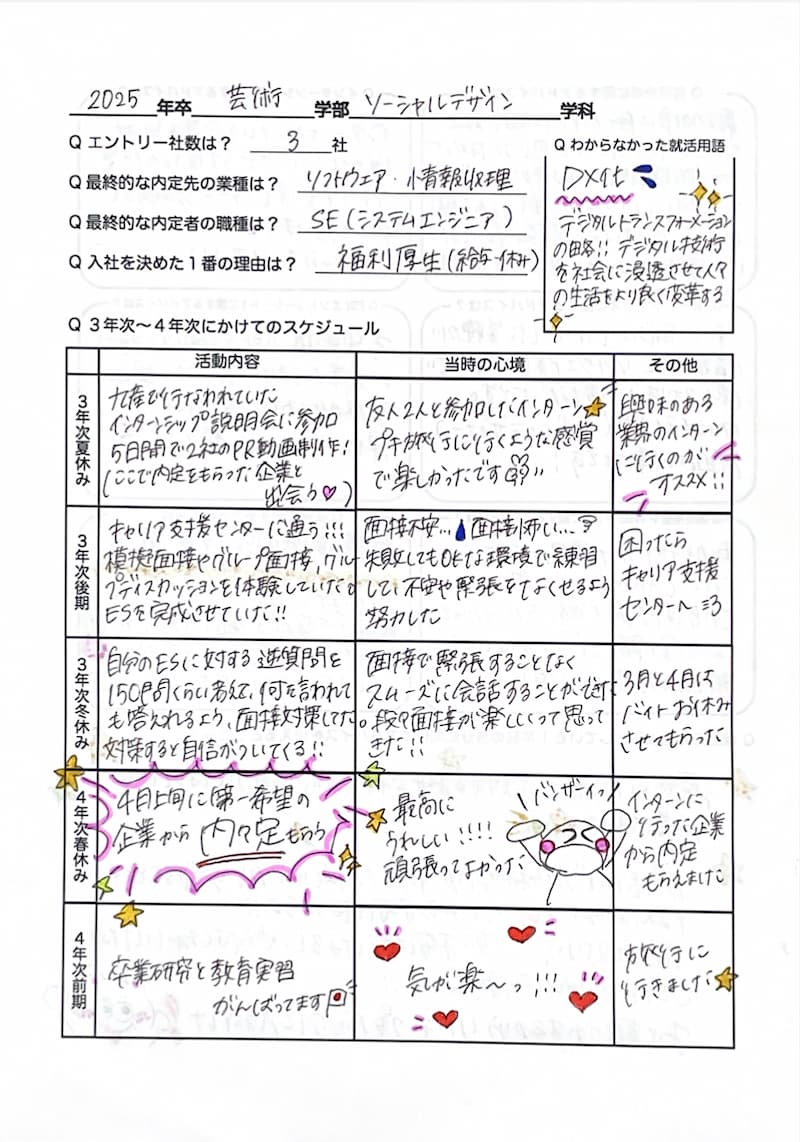 2025 年卒 芸術 学部 ソーシャルデザイン 学科
Q エントリー社数は？ 3 社
Q 最終的な内定先の業種は？ ソフトウェア・情報処理
Q 最終的な内定者の職種は？ SE（システムエンジニア）
Q 入社を決めた１番の理由は？ 福利厚生（給与・休み）
Q わからなかった就活用語
DX化
デジタルトランスフォーメーション
の略!! デジタル技術
を社会に浸透させて人々
の生活をより良く変革する
Q ３年次〜４年次にかけてのスケジュール
活動内容 当時の心境 その他
３年次夏休み
九産で行なわれていた
インターンシップ説明会に参加
5日間で2社のPR動画制作！
（ここで内定をもらった企業と
出会う♡）
友人2人と参加したインターン
プチ旅行に行くような感覚
で楽しかったです
興味のある
業界のインターン
に行くのが
オススメ!!
３年次後期
キャリア支援センターに通う!!!
模擬面接やグループ面接、グルー
プディスカッションを体験していた
ESを完成させていた!!
面接不安… 面接怖い…
失敗してもOKな環境で練習
して、不安や緊張をなくせるよう
努力した
困ったら
キャリア支援
センターへ
３年次冬休み
自分のESに対する逆質問を
150問くらい考えて、何を言われて
も答えれるよう、面接対策してた。
対策すると自信がついてくる!!
面接で緊張することなく
スムーズに会話することができた
段々面接が楽しいって思って
きた!!
3月と4月は
バイトお休み
させてもらった
４年次春休み
4月上旬に第一希望の
企業から内々定もらう
最高に
うれしい!!!!
頑張ってよかった
バンザーイっ
インターンに
行った企業
から内定
もらえました
４年次前期
卒業研究と教育実習
がんばってます
気が楽〜っ!!!
旅行に
行きました